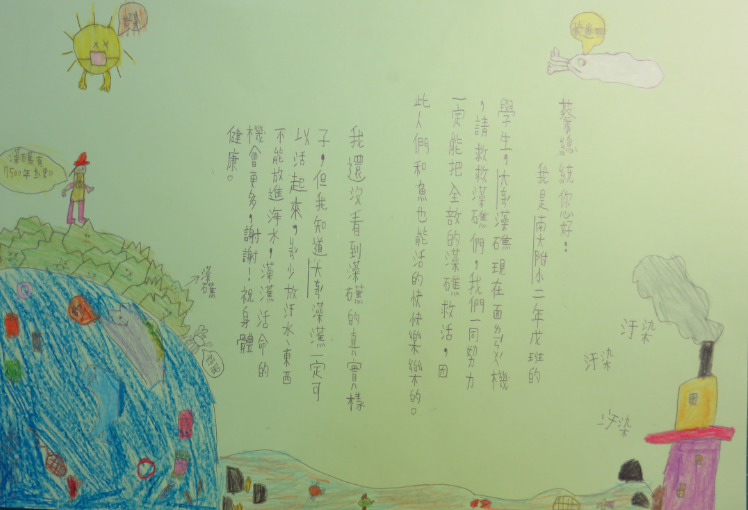 蔡總統你好:
我是南大附小二年戊班的
學生,大彰藻礁現在面ㄌㄧㄣˊ危機
,請救救藻礁們,我們一同努力
一定能把全部的藻礁救活,因
此人們和魚也能活的快快樂樂的。
我還沒看到藻礁的真實樣
子,但我知道大彰藻礁一定可
以活起來,少放汙水、東西
不能放進海水,藻礁活命的
機會更多,謝謝!祝身體
健康。
藻礁有
7500年
藻礁
汙染
汙染
汙染